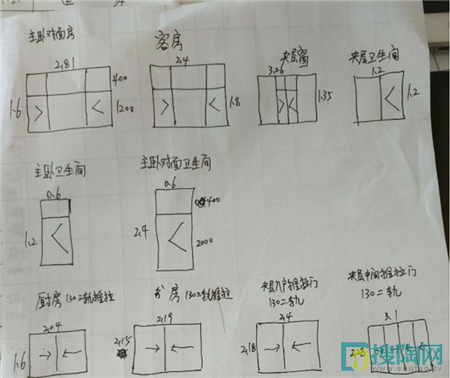 主卧对面房
2.81
400
1.6
1200
客房
2.4
1.8
夹层窗
3.26
1.35
夹层卫生间
1.2
1.2
主卧卫生间
0.6
1.2
主卧对面卫生间
0.6
400
2.4
2000
厨房130二轨推拉
2.04
1.6
房130二轨推拉
2.19
2.15
夹层入户推拉门
130二轨
2.4
2.18
夹层中间推拉门
130二轨
3.1
搜陶网
www.soutao.cc